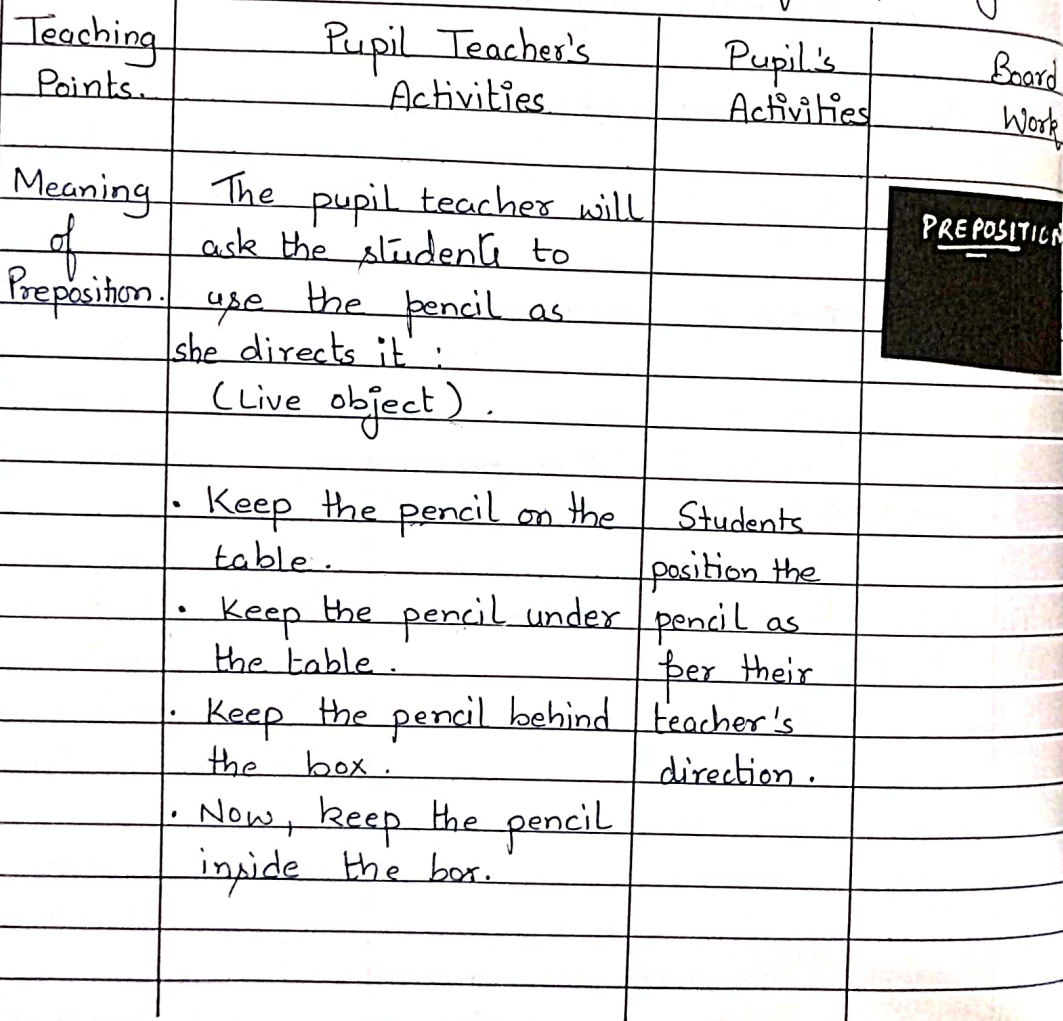 Teaching
Points.
Pupil Teacher's
Activities
Pupil's
Activities
Board
Work
Meaning
of
Preposition.
The pupil teacher will
ask the students to
use the pencil as
she directs it :
(Live object).
• Keep the pencil on the
table.
• Keep the pencil under
the table.
• Keep the pencil behind
the box.
• Now, keep the pencil
inside the box.
Students
position the
pencil as
per their
teacher's
direction.
PREPOSITION